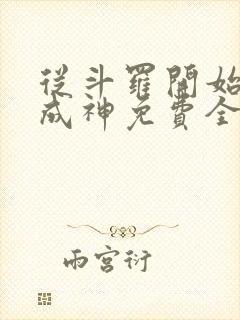 從斗羅開始
成神免費全
雨宮衍